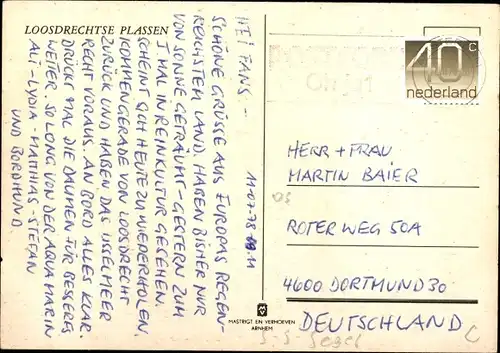 LOOSDRECHTSE PLASSEN
HEI FANS -
SCHÖNE GRÜSSE AUS EUROPAS REGEN-
REICHSTEM LAND. HABEN BISHER NUR
VON SONNE GETRÄUMT - GESTERN ZUM
1 MAL IN REINKULTUR GESEHEN.
SCHEINT SICH HEUTE ZU WIEDERHOLEN.
KOMMEN GERADE VON LOOSDRECHT
ZURÜCK UND HABEN DAS IJSSELMEER
RECHT VORAUS. AN BORD ALLES KLAR.
DRÜCKT MAL DIE DAUMEN FÜR BESSERES
WEITER. SO LONG VON DER AQUAMARIN
ALI-LYDIA-MATTHIAS-STEFAN
UND BORDHUND.
11.07.78
MASTRIGT EN VERHOEVEN
ARNHEM
40 c
nederland
HERR + FRAU
MARTIN BAIER
ROTER WEG 50A
4600 DORTMUND 30
DEUTSCHLAND